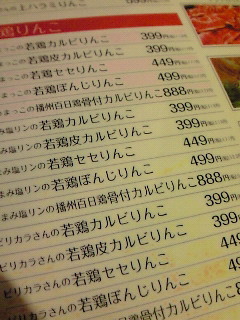 上ハラミりんこ
鶏りんこ
まっこの若鶏カルビりんこ 399円
まっこの若鶏皮カルビりんこ 399円
まっこの若鶏セセリりんこ 449円
まっこの若鶏ぼんじりりんこ 499円
まっこの播州百日鶏骨付カルビりんこ 888円
まみ塩リンの若鶏カルビりんこ 399円
まみ塩リンの若鶏皮カルビりんこ 399円
まみ塩リンの若鶏セセリりんこ 449円
まみ塩リンの若鶏ぼんじりりんこ 499円
まみ塩リンの播州百日鶏骨付カルビりんこ 888円
ピリカラさんの若鶏カルビりんこ 399円
ピリカラさんの若鶏皮カルビりんこ 399
ピリカラさんの若鶏セセリりんこ 449
ピリカラさんの若鶏ぼんじりりんこ 49
ピリカラさんの播州百日鶏骨付カルビりんこ 8